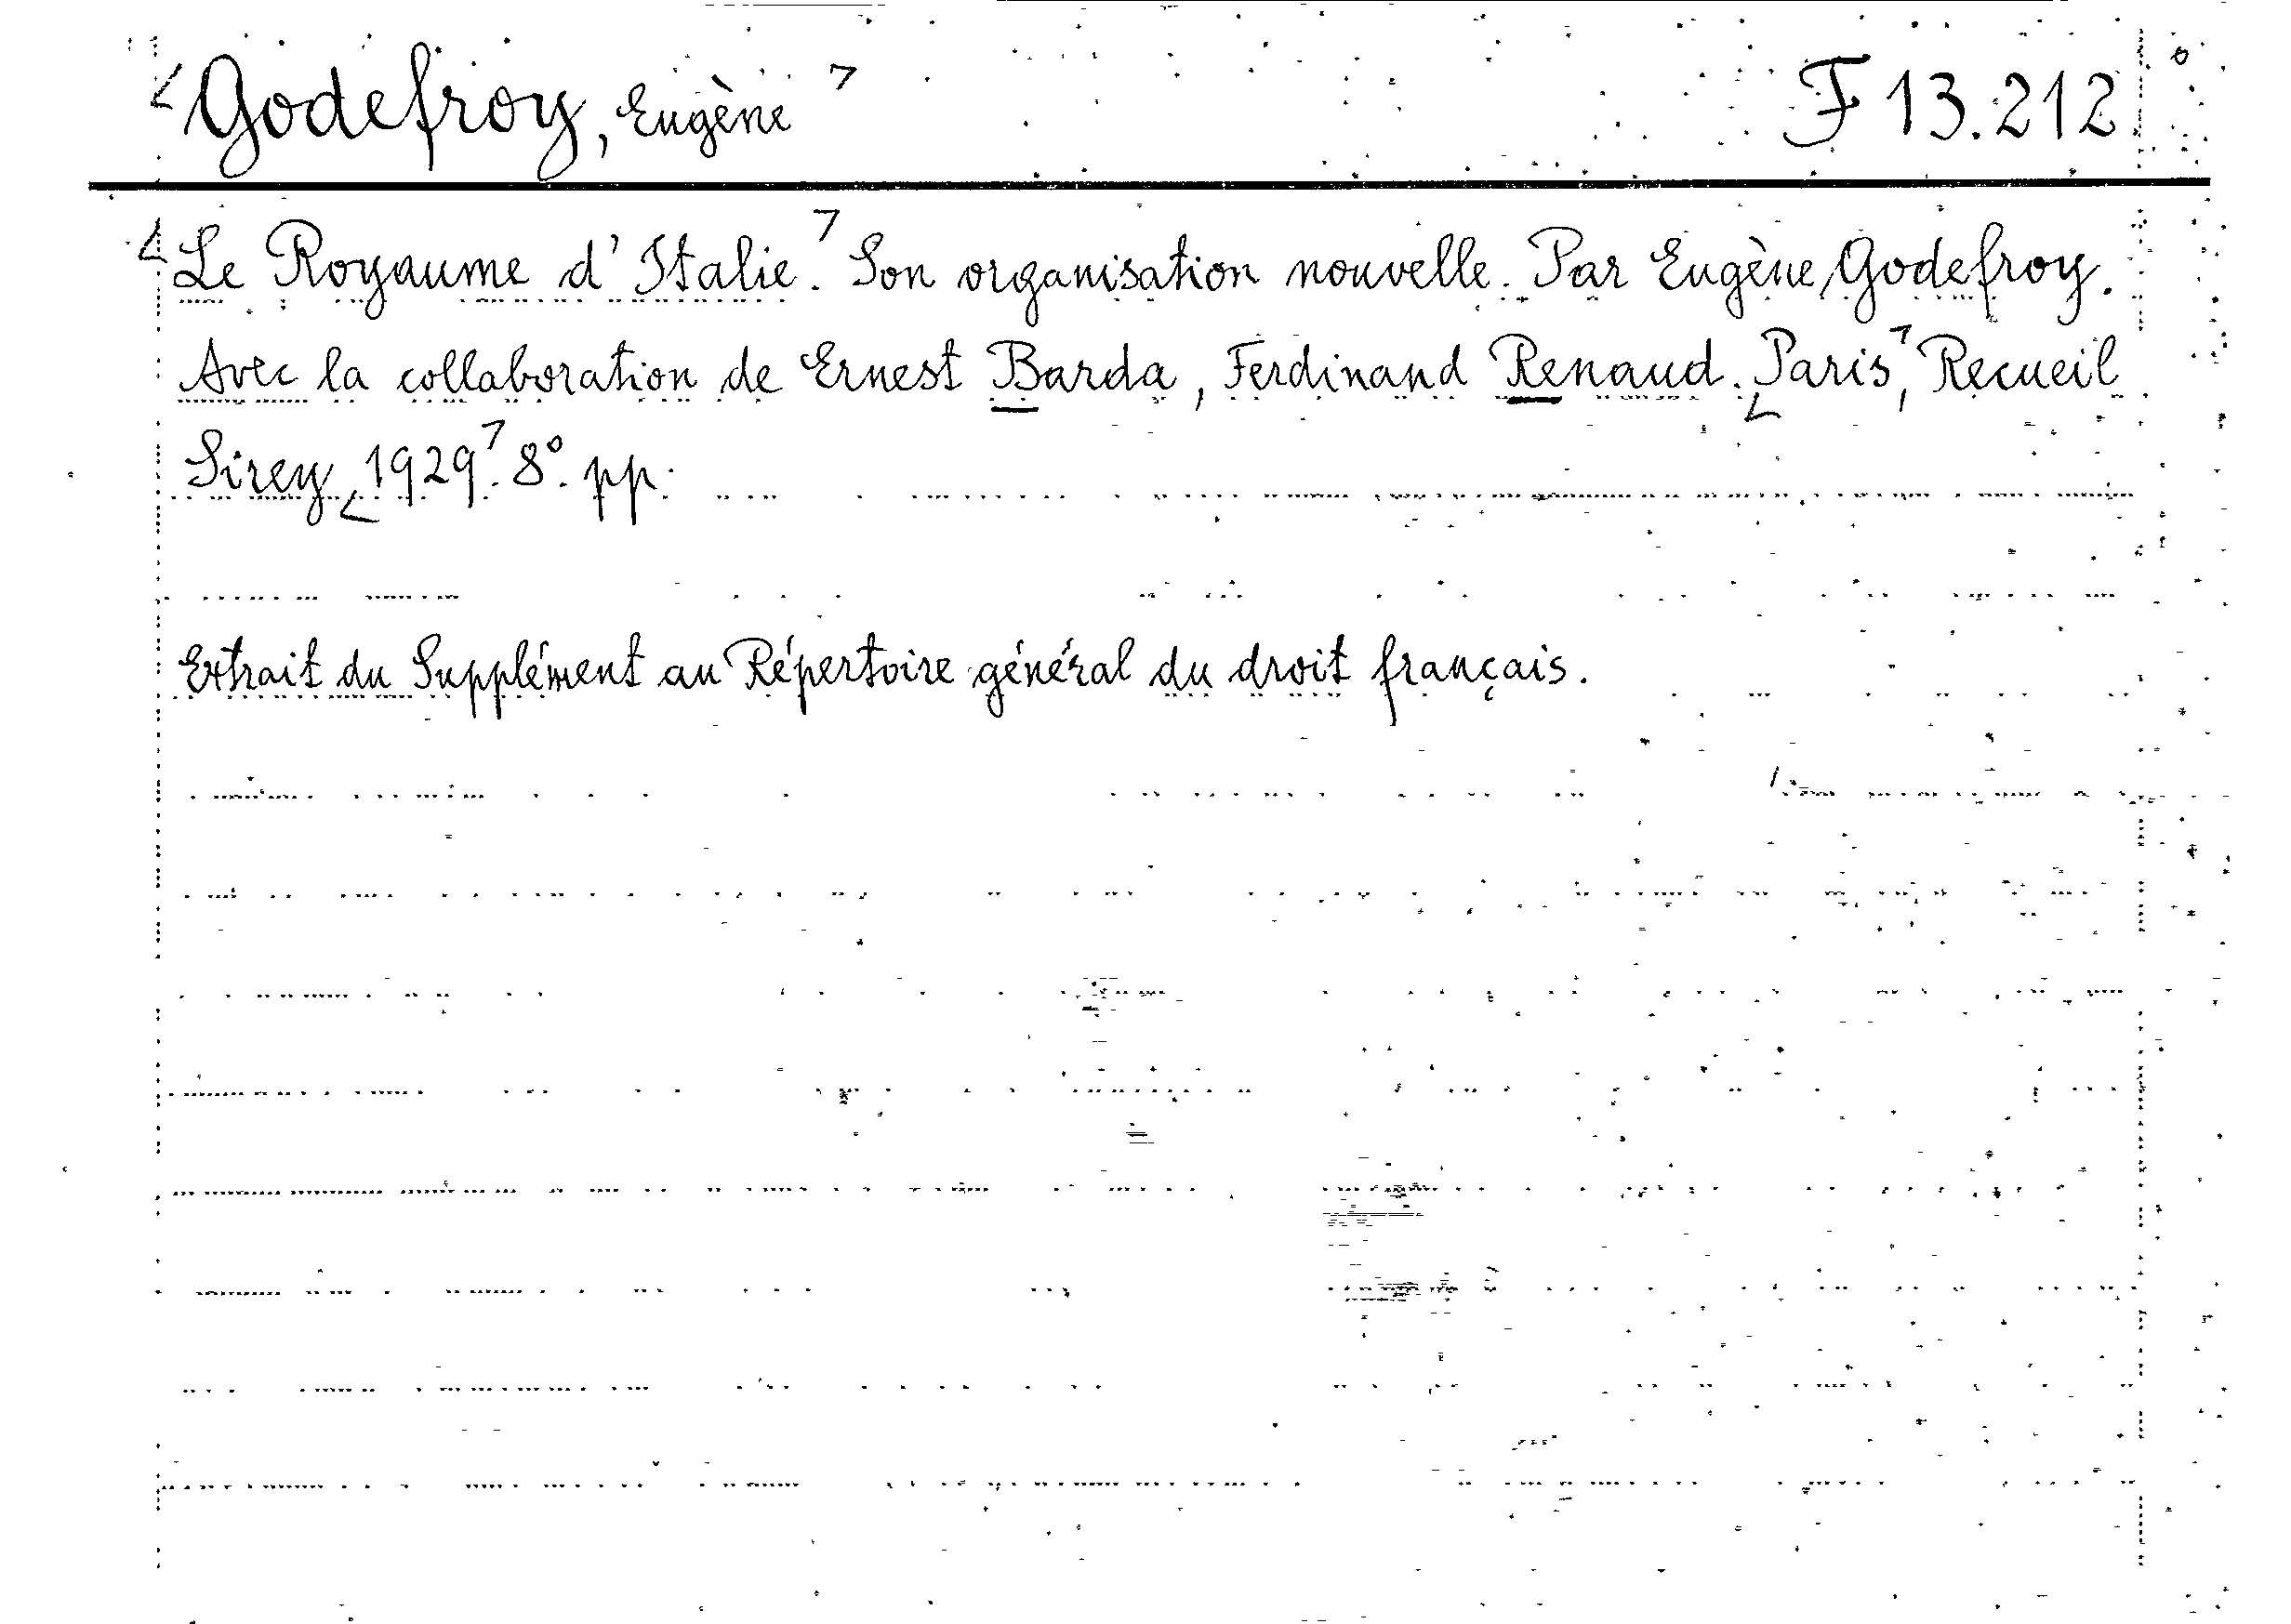 Godefroy, Eugène F 13.212
Le Royaume d'Italie. Son organisation nouvelle. Par Eugène Godefroy.
Avec la collaboration de Ernest Barda, Ferdinand Renaud. Paris, Recueil
Sirey 1929. 8°. pp.
Extrait du Supplément au Répertoire général du droit français.